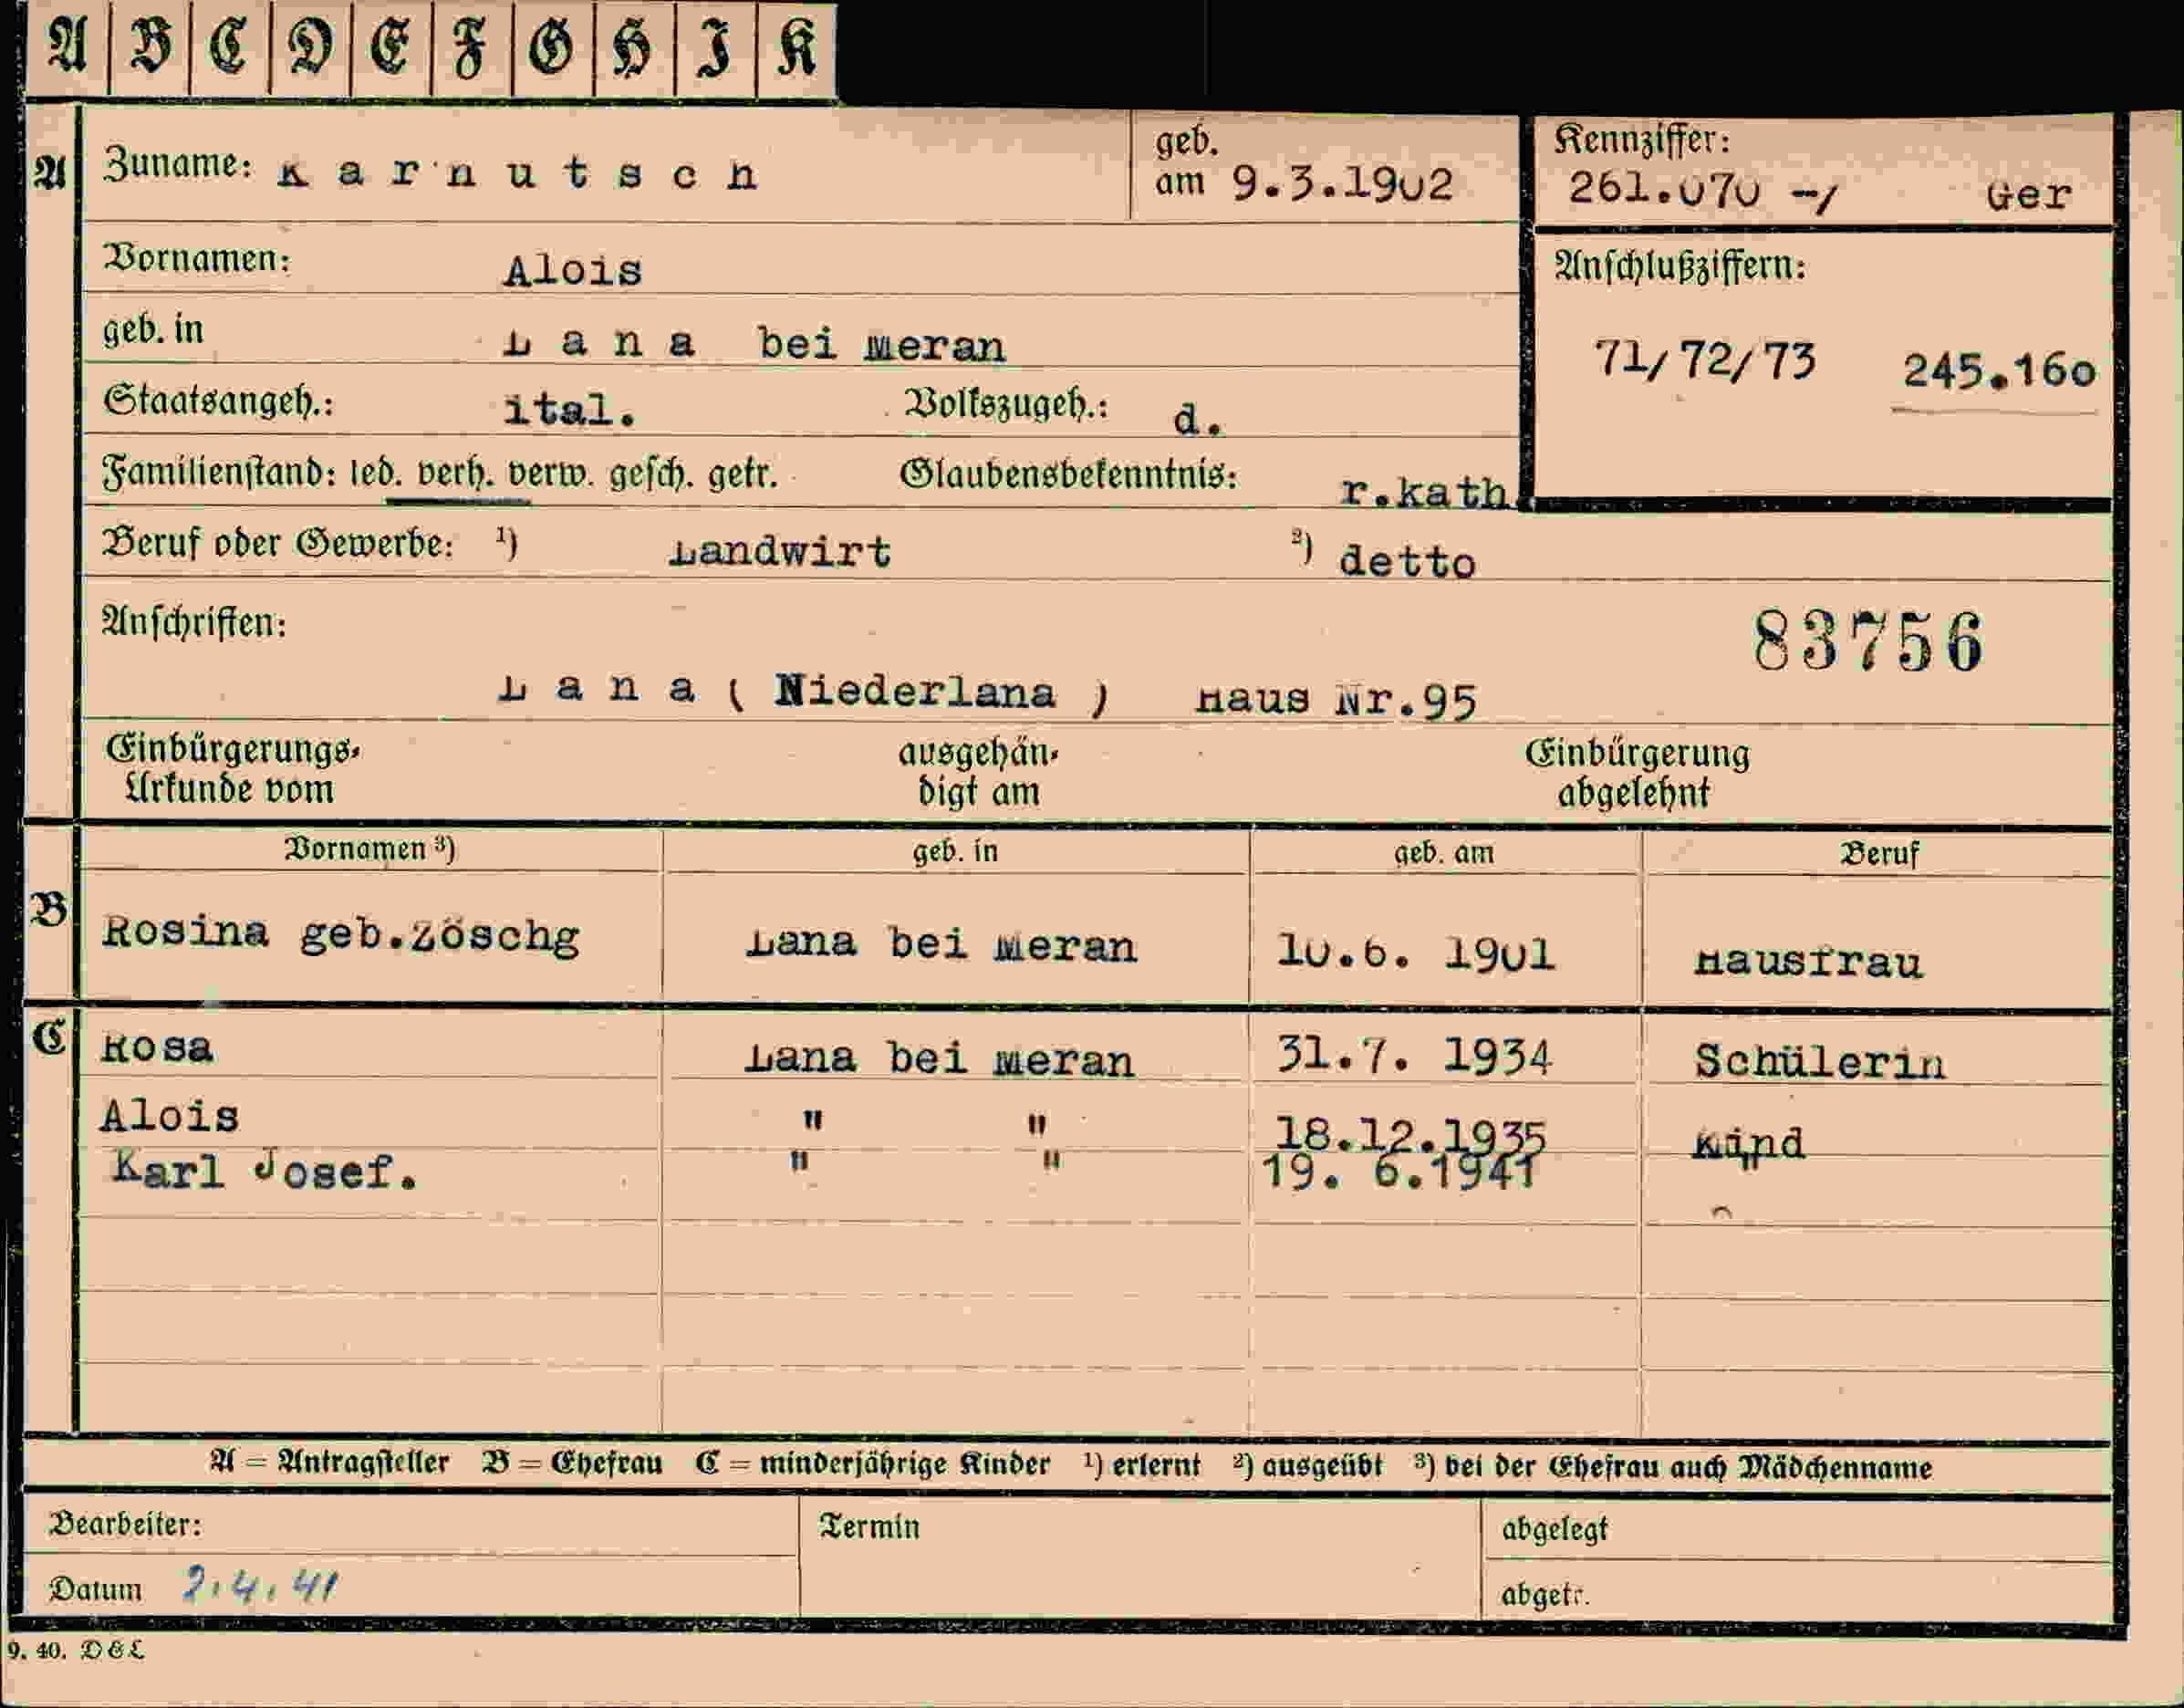 A B C D E F G H I K
A Zuname: K a r n u t s c h geb. am 9.3.1902 Kennziffer: 261.070 -/ Ger
Vornamen: Alois Anschlußziffern:
geb. in L a n a bei Meran 71/72/73 245.160
Staatsangeh.: ital. Volkszugeh.: d.
Familienstand: led. verh. verw. gesch. getr. Glaubensbekenntnis: r.kath.
Beruf oder Gewerbe: ¹) Landwirt ²) detto
Anschriften: 83756
L a n a ( Niederlana ) Haus Nr.95
Einbürgerungs- ausgehän- Einbürgerung
Urkunde vom digt am abgelehnt
Vornamen ³) geb. in geb. am Beruf
B Rosina geb.Zöschg Lana bei Meran 10.6. 1901 Hausfrau
C Rosa Lana bei Meran 31.7. 1934 Schülerin
Alois " " 18.12.1935 Kind
Karl Josef. " " 19. 6.1941 "
A = Antragsteller B = Ehefrau C = minderjährige Kinder ¹) erlernt ²) ausgeübt ³) bei der Ehefrau auch Mädchenname
Bearbeiter: Termin abgelegt
Datum 2.4.41 abgetr.
9. 40. D E L